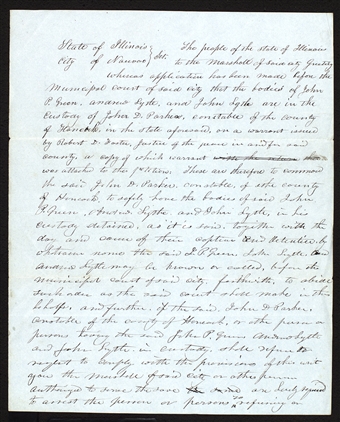 State of Illinois } The people of the state of Illinois
City of Nauvoo } Sct. to the Marshall of said city Greeting
whereas application has been made before the
Municipal court of said city that the bodies of John
P. Green, Andrew Lytle, and John Lytle are in the
Custody of John D. Parker, constable of the county
of Hancock, in the state aforesaid, on a warrant issued
by Robert D. Foster, Justice of the peace in and for said
county, a copy of which warrant
was attached to the petition. These are therefore to command
the said John D. Parker, constable, of the county
of Hancock, to safely have the bodies of said John
P. Green, Andrew Lytle and John Lytle, in his
custody detained, as it is said, together with the
day and cause of their caption and detention by
whatsoever name the said J. P. Green, John Lytle, and
Andrew Lytle may be known or called, before the
municipal court of said city, forthwith, to abide
such order as the said court shall make in their
behalf, and further, if the said, John D. Parker,
constable of the county of Hancock, or other person or
persons having the said John P. Green Andrew Lytle
and John Lytle in custody, shall refuse or
neglect to comply with the provisions of this writ
upon the Marshall of said city or other person
authorized to serve the same are hereby required
to arrest the person or persons so refusing or